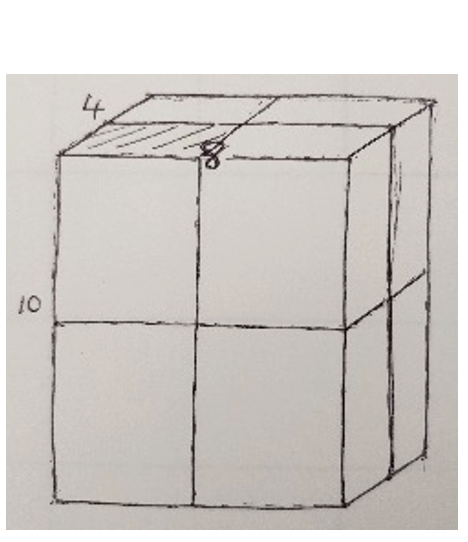 4
8
10